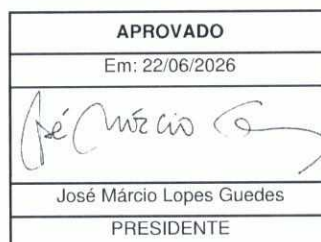 APROVADO
Em: 22/06/2026
José Márcio
José Márcio Lopes Guedes
PRESIDENTE